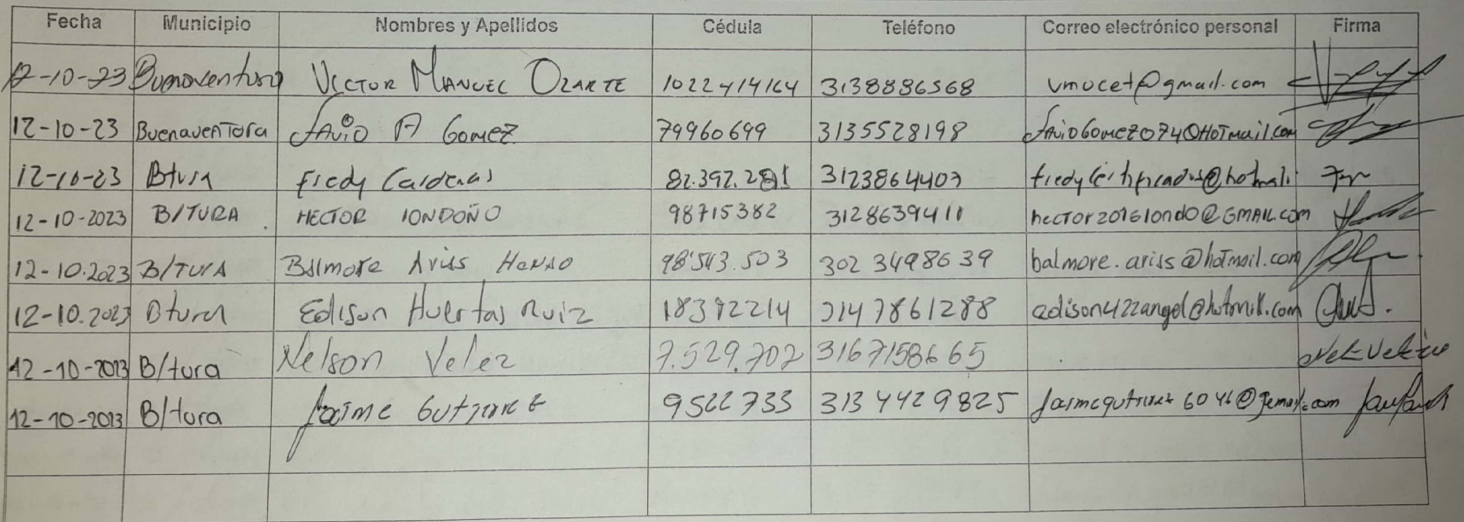 Fecha Municipio Nombres y Apellidos Cédula Teléfono Correo electrónico personal Firma
12-10-23 Buenaventura VICTOR MANUEL OLARTE 1022414164 3138886568 vmocet@gmail.com
12-10-23 BuenavenTora FAVIO A GomeZ 79960699 3135528198 favioGomez074@HoTmail.com
12-10-23 Btura Fredy Cardenas 82.392.281 3123864407
12-10-2023 B/TURA HECTOR LONDOÑO 98715382 3128639411 hector2016londo@GMAIL.com
12-10.2023 B/TURA Balmore Arias Henao 98'543.503 302 3498639 balmore.arias@hotmail.com
12-10.2023 Btura Edison Huertas Ruiz 18392214 3147861288 edison422angel@hotmil.com
12-10-2023 B/tura Nelson Velez 7.529.702 3167158665
12-10-2023 B/tura Jaime 9522733 3134429825